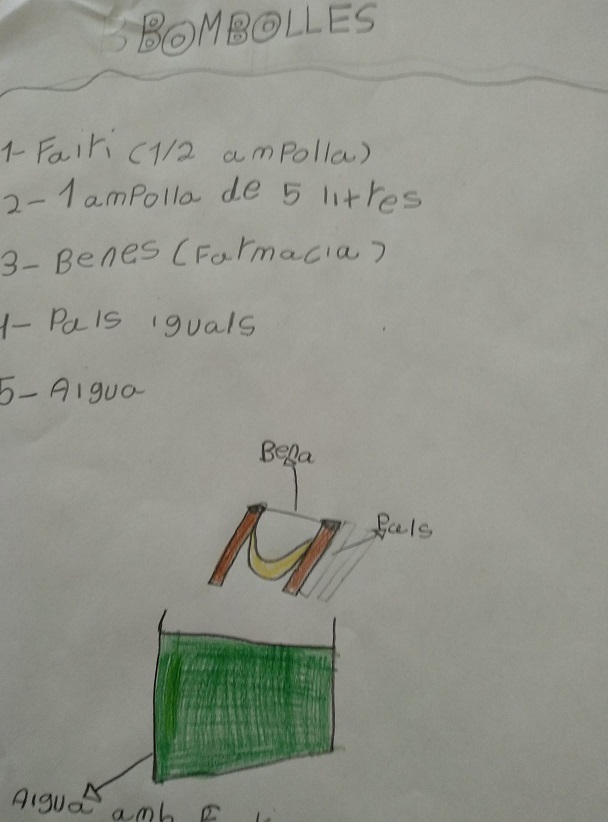 BOMBOLLES
1- Fairi (1/2 ampolla)
2- 1 ampolla de 5 litres
3- Benes (Farmacia)
4- Pals iguals
5- Aigua
Bena
Pals
Aigua amb